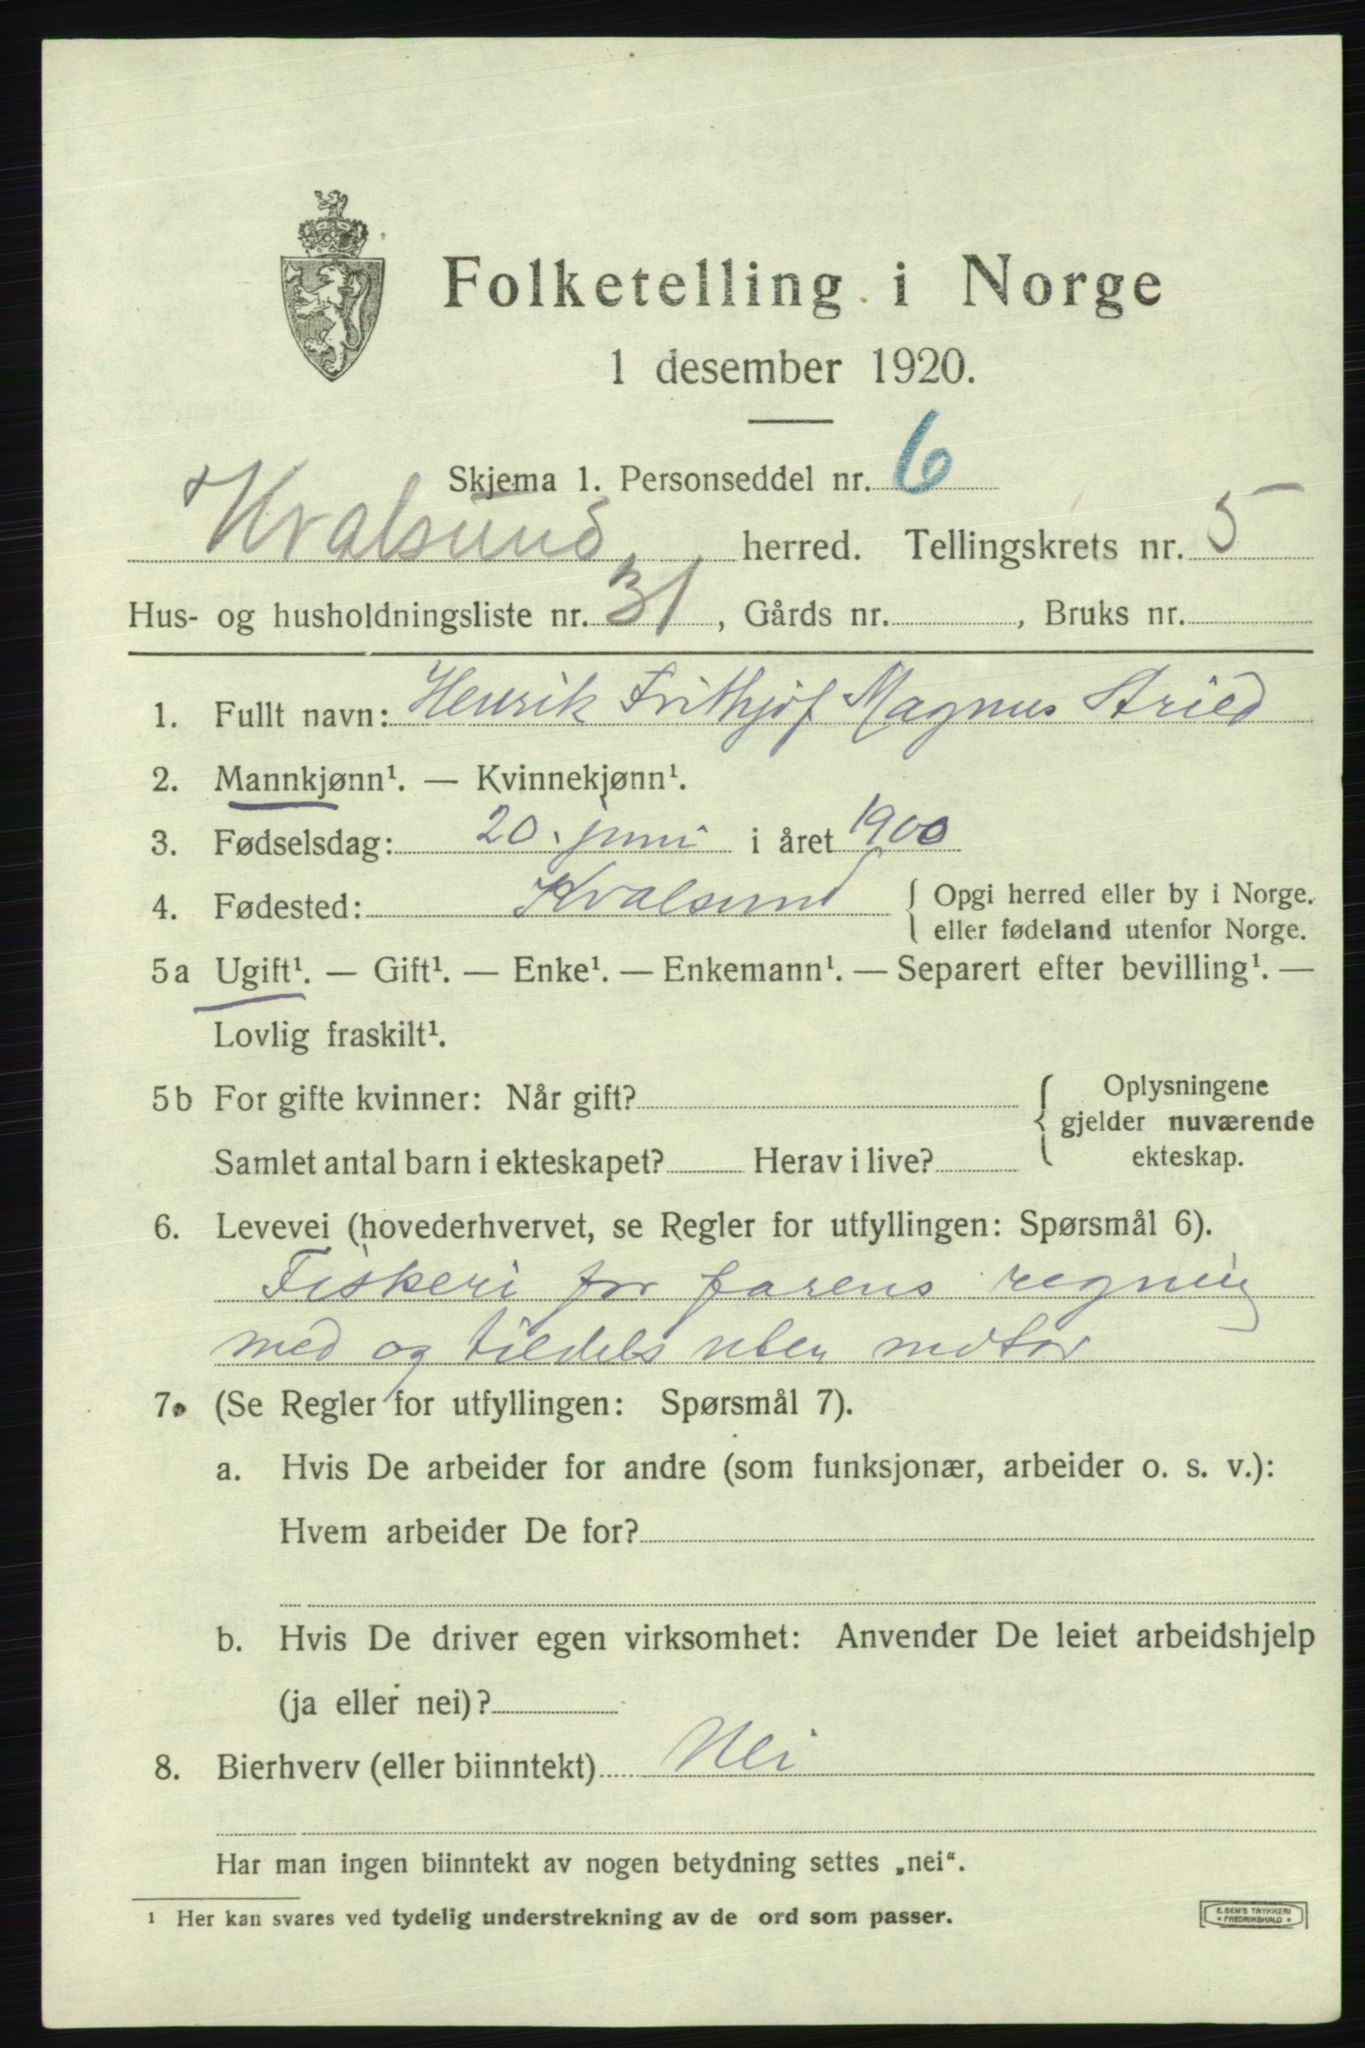 Folketelling i Norge
1 desember 1920.
Skjema 1. Personseddel nr. 6
Kvalsund herred. Tellingskrets nr. 5
Hus- og husholdningsliste nr. 31, Gårds nr. , Bruks nr.
1. Fullt navn: Henrik Frithjof Magnus Stried
2. Mannkjønn¹. — Kvinnekjønn¹.
3. Fødselsdag: 20. juni i året 1900
4. Fødested: Kvalsund { Opgi herred eller by i Norge.
eller fødeland utenfor Norge.
5a Ugift¹. — Gift¹. — Enke¹. — Enkemann¹. — Separert efter bevilling¹. —
Lovlig fraskilt¹.
5b For gifte kvinner: Når gift? { Oplysningene
gjelder nuværende
Samlet antal barn i ekteskapet? Herav i live? ekteskap.
6. Levevei (hovederhvervet, se Regler for utfyllingen: Spørsmål 6).
Fiskeri for farens regning
med og tildels uten motor
7. (Se Regler for utfyllingen: Spørsmål 7).
a. Hvis De arbeider for andre (som funksjonær, arbeider o. s. v.):
Hvem arbeider De for?
b. Hvis De driver egen virksomhet: Anvender De leiet arbeidshjelp
(ja eller nei)?
8. Bierhverv (eller biinntekt) Nei
Har man ingen biinntekt av nogen betydning settes „nei“.
¹ Her kan svares ved tydelig understrekning av de ord som passer.
E. SEM'S TRYKKERI
FREDRIKSHALD